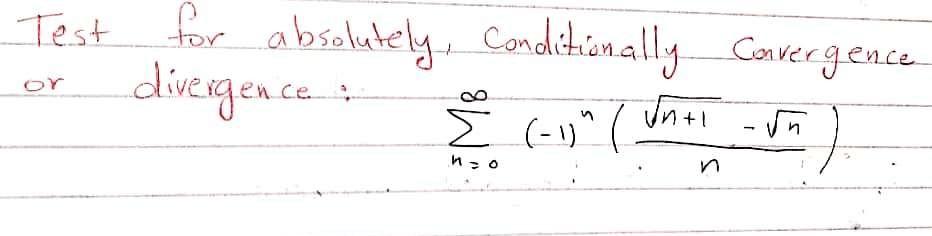 Test for absolutely, Conditionally Convergence
or divergence :
∞
∑ (-1)ⁿ ( (√n+1 - √n) / n )
n=0